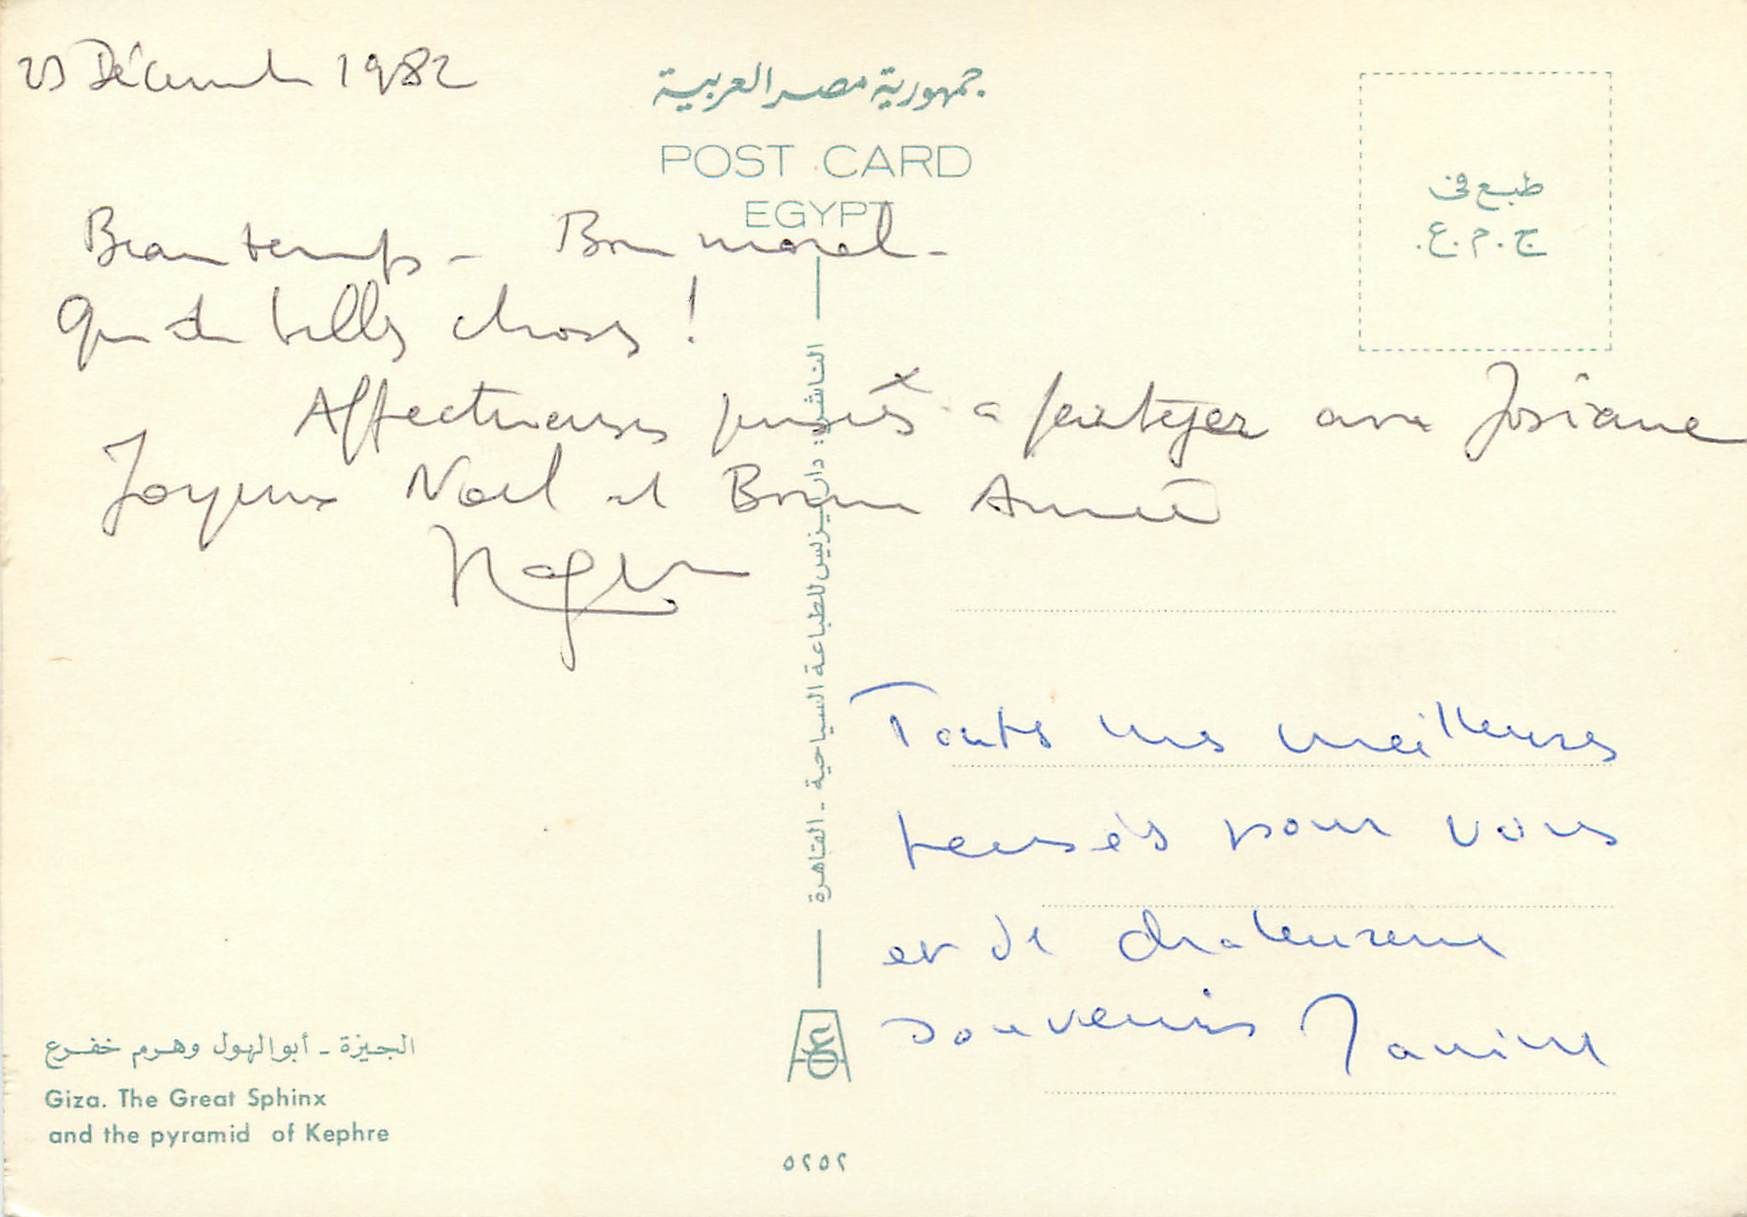 23 Décembre 1982
جمهورية مصر العربية
POST CARD
EGYPT
طبع في
ج.م.ع.
Beau temps - Bon moral -
Que de belles choses !
Affectueuses pensées à partager avec Josiane
Joyeux Noël et Bonne Année
الناشر: دار لطباعة السياحية - القاهرة
Toutes mes meilleures
pensées pour vous
et de chaleureux
souvenirs Janine
الجيزة - أبو الهول وهرم خفرع
Giza. The Great Sphinx
and the pyramid of Kephre
٥٢٥٢